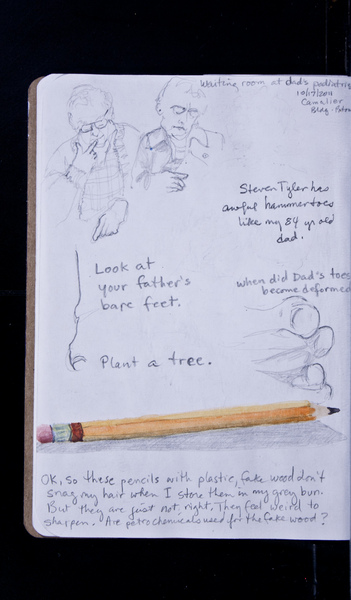 Waiting room at dad's podiatrist
10/17/2011
Camalier
Bldg.
Steven Tyler has
awful hammertoes
like my 84 yr old
dad.
Look at
your father's
bare feet.
when did Dad's toes
become deformed
Plant a tree.
OK, so these pencils with plastic, fake wood don't
snag my hair when I store them in my grey bun.
But they are just not right. They feel weird to
sharpen. Are petrochemicals used for the fake wood?